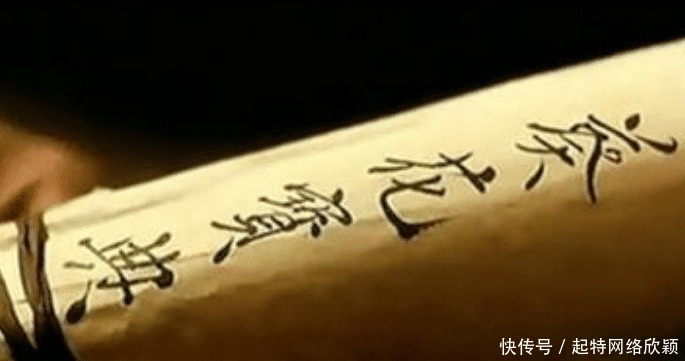 葵花寶典
快传号 / 起特网络欣颖